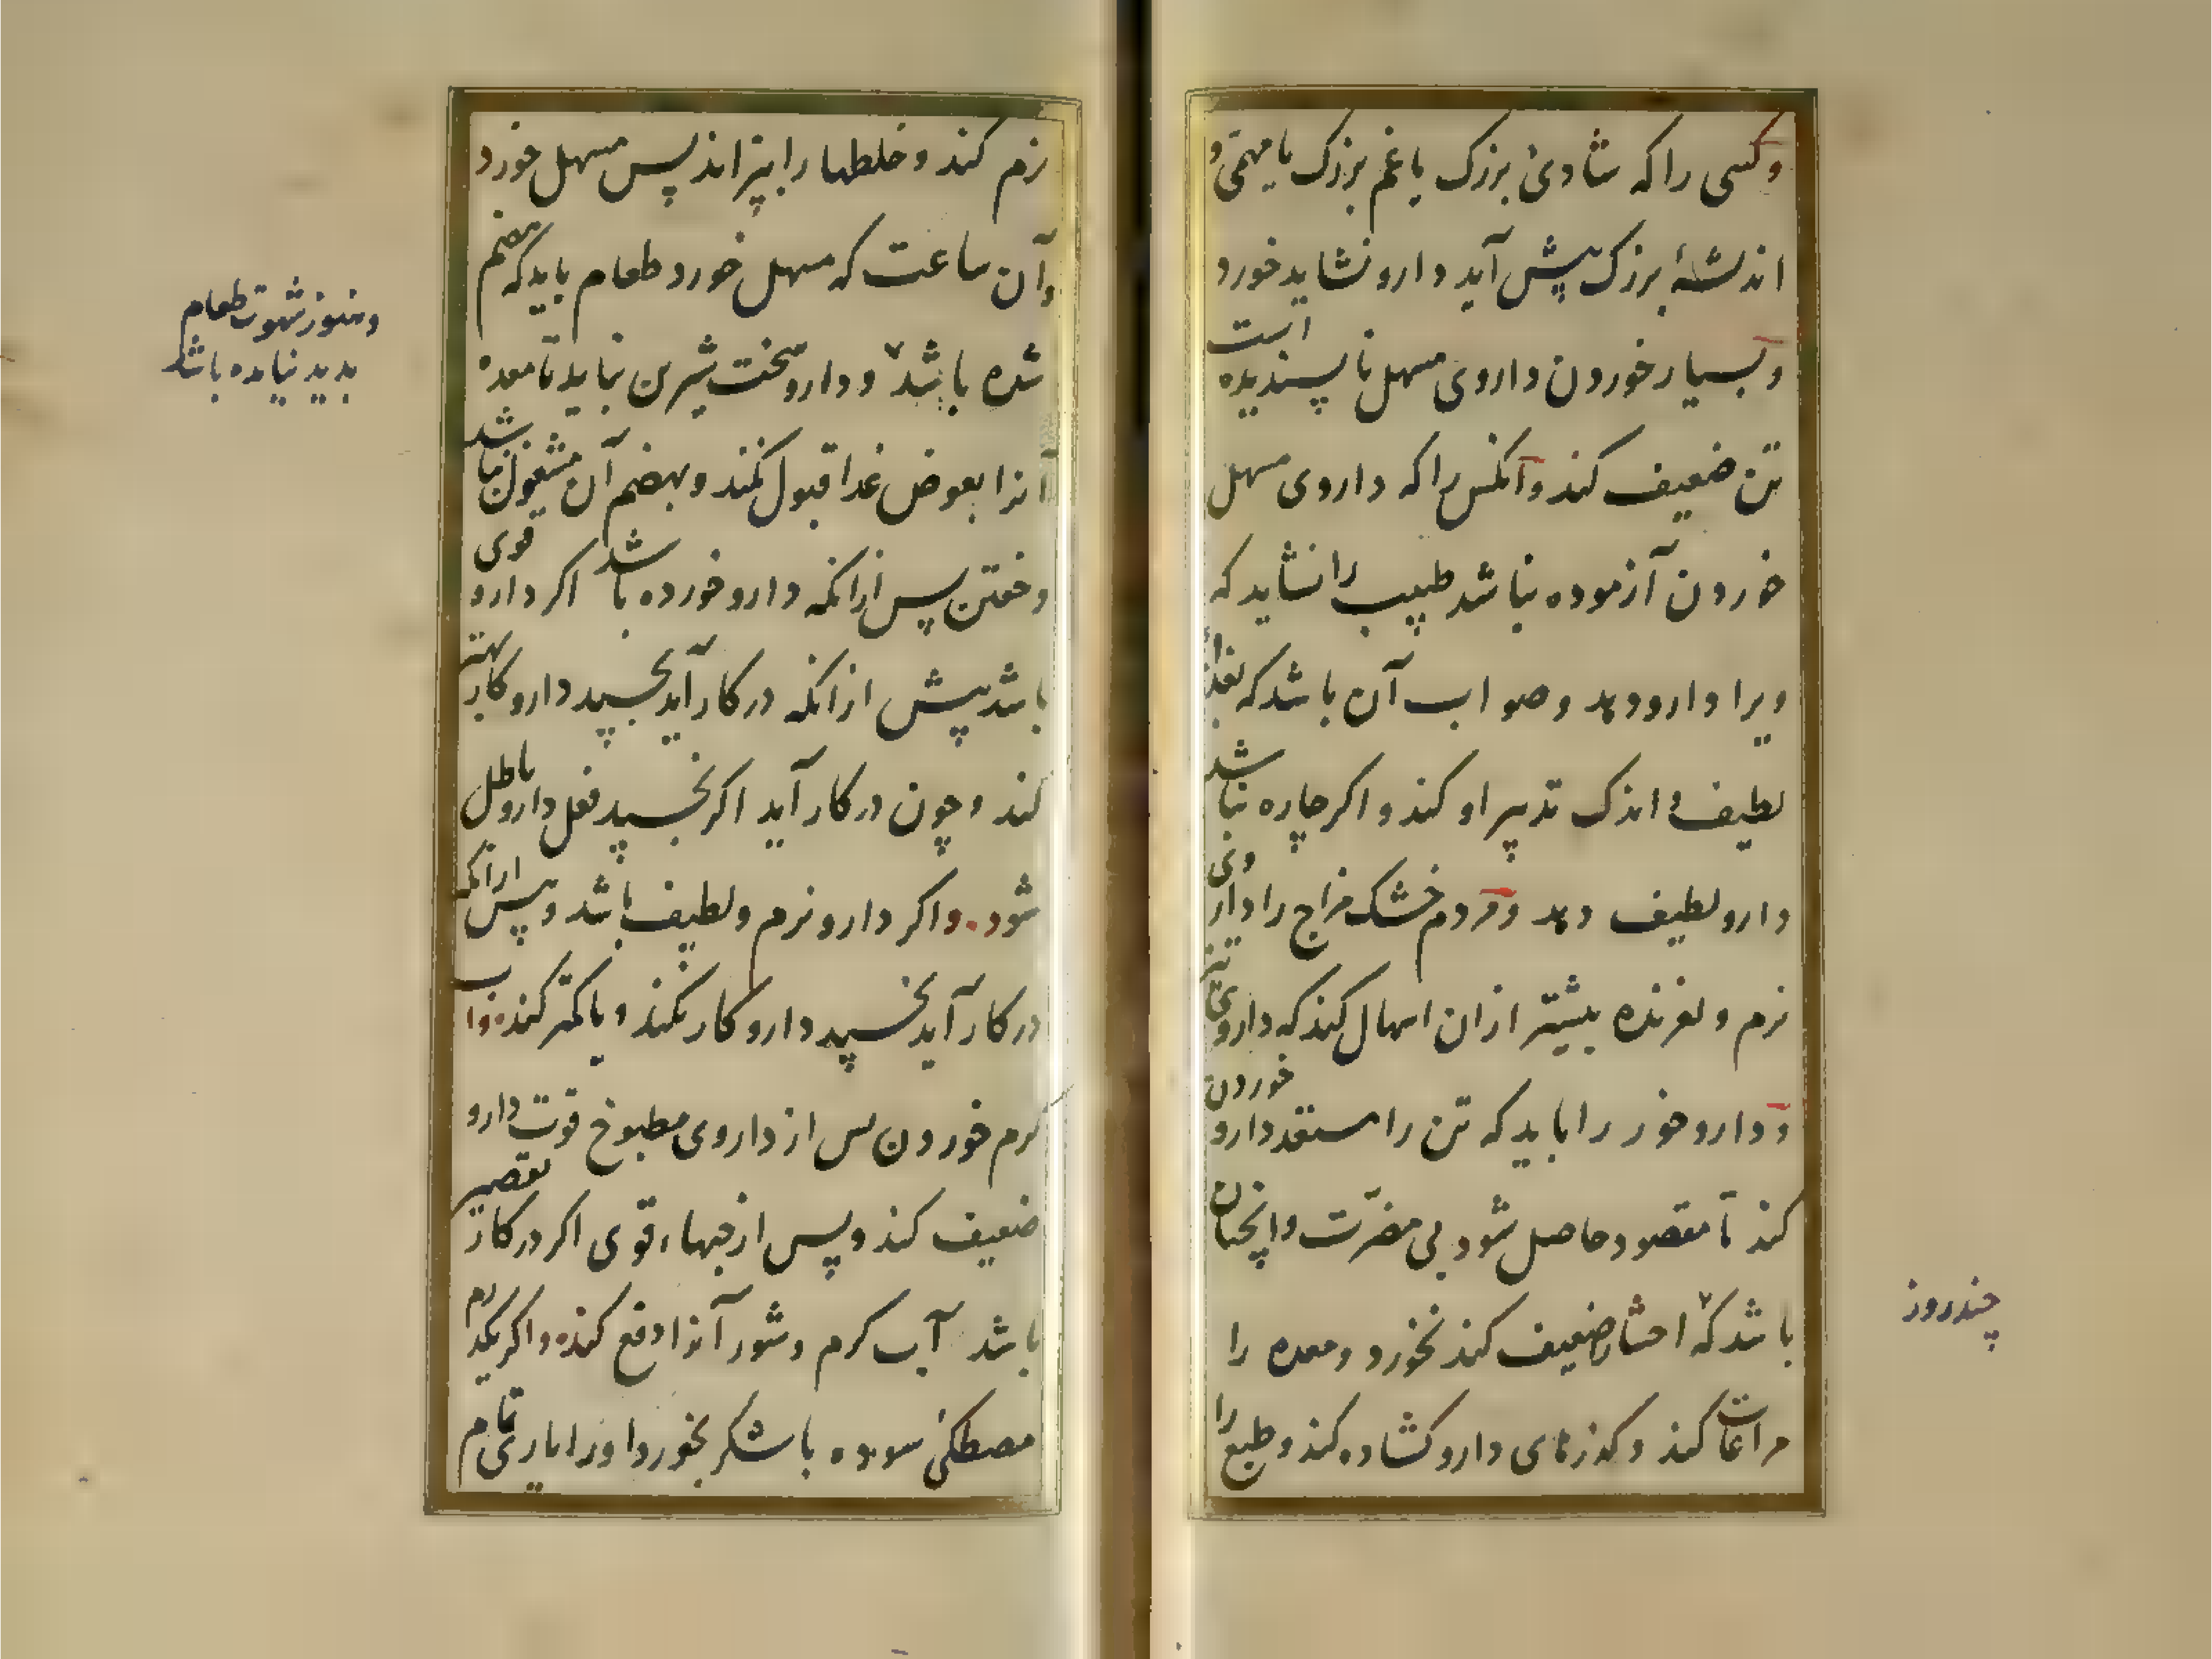 وکسی را که شادیٔ بزرک یا غم بزرک یا مهمّی و
اندیشهٔ بزرک پیش آید دارو نشاید خورد
و بسیار خوردن داروی مسهل ناپسندیده است
تن ضعیف کند و آنکس را که داروی مسهل
خوردن آزموده نباشد طبیب را نشاید که
ویرا دارو دهد و صواب آن باشد که بغذاء
لطیف و اندک تدبیر او کند و اکر چاره نباشد
دارو لطیف دهد و مردم خشک مزاج را داروئی
نرم و لغزنده بیشتر ازان اسهال کند که داروی تیز
و دارو خور را باید که تن را مستعد دارو خوردن
کند تا مقصود حاصل شود بی مضرّت و اینچنان
باشد که احشا را ضعیف کند نخورد و معده را
چند روز
مراعات کند و کذرهای دارو کشاده کند و طبع را
نرم کند و خلطها را بپزاند پس مسهل خورد
و آن ساعت که مسهل خورد طعام باید که هضم
شده باشد و دارو سخت شیرین نباید تا معده
وهنوز شهوت طعام
بدید نیامده باشد
آنرا بعوض غذا قبول نکند و بهضم آن مشغول نباشد
و خفتن پس ازانکه دارو خورده باشد اکر دارو قوی
باشد پیش ازانکه در کار آید بخسپد دارو کار بهتر
کند و چون در کار آید اکر بخسپد فعل دارو باطل
شود. واکر دارو نرم و لطیف باشد و پس ازانکه
در کار آید بخسپد دارو کار نکند و یا کمتر کند. واب
کرم خوردن پس از داروی مطبوخ قوت دارو
ضعیف کند و پس از حبهاء قوی اکر در کار تقصیر
باشد آب کرم و شور آنرا دفع کند. واکر یکدرم
مصطکی سوده با شکر بخورد اورا یاری تمام